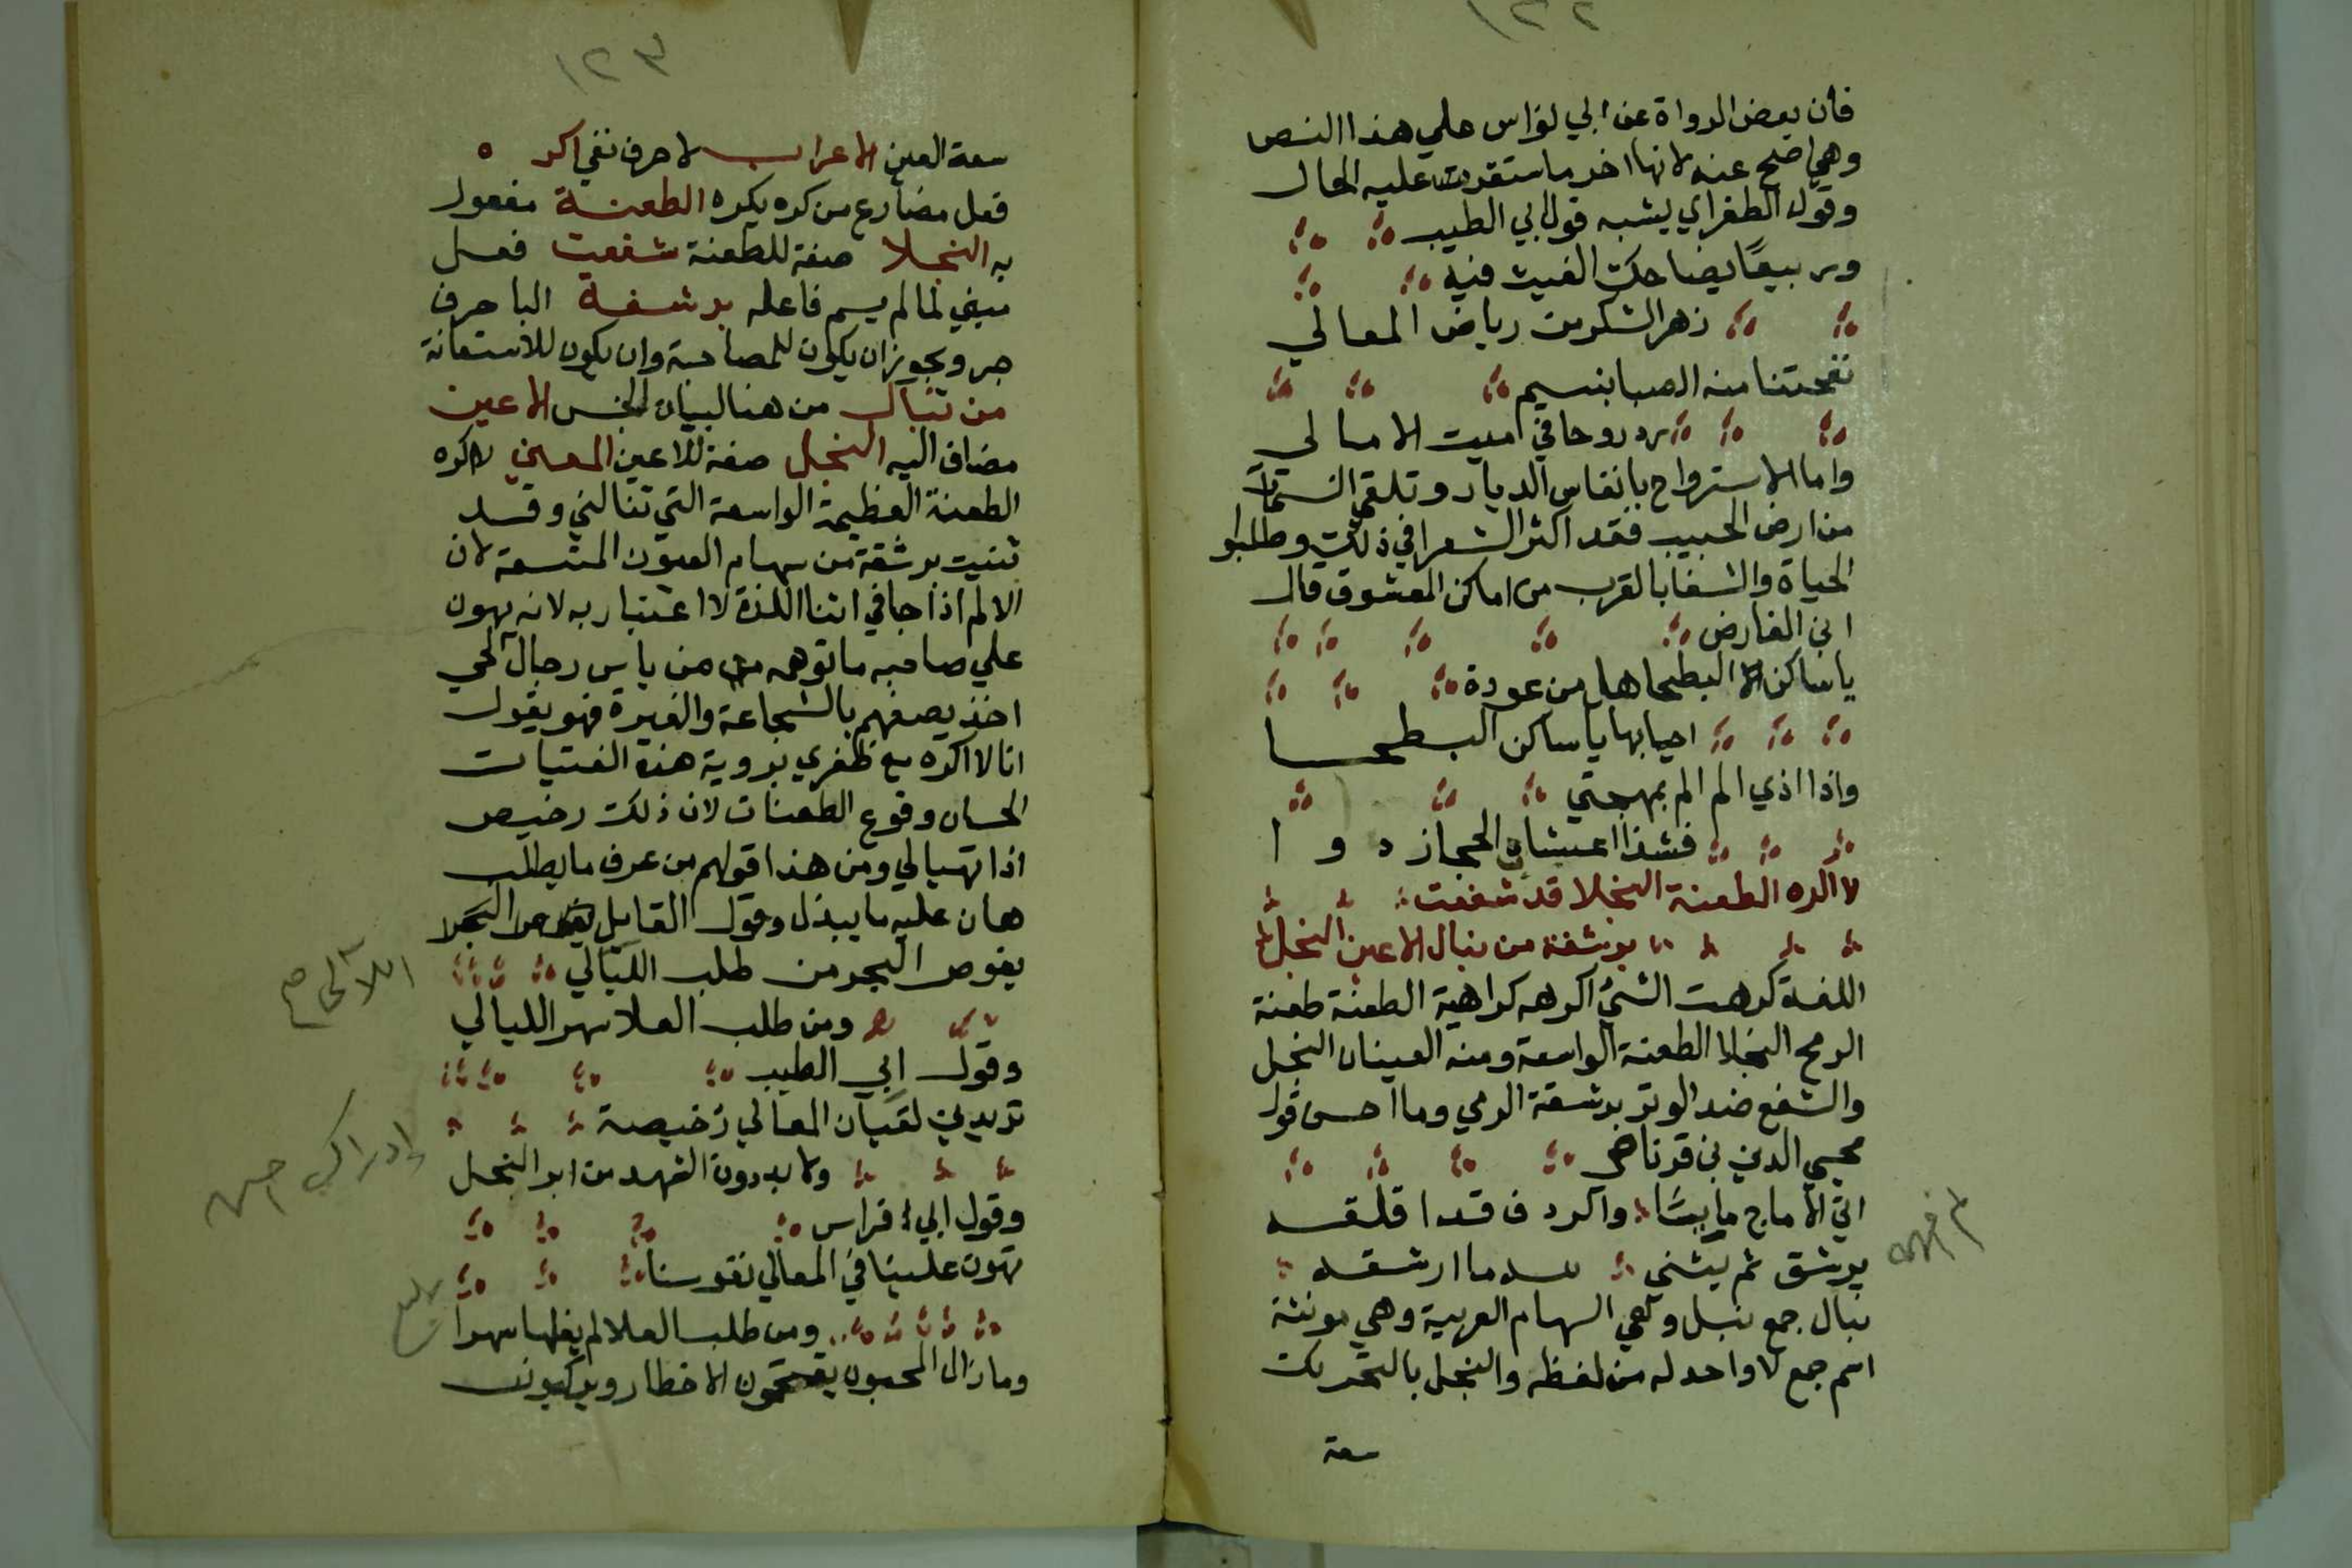 ١٢٢
فان بعض الرواة عن ابي نواس علي هذا النص
وهي اضح عنه لانها اخر ما ستقرت عليه الحال
وقول الطغراي يشبه قول ابي الطيب
وربيعًا يضاحك الغيث فيه
زهر الشكر من رياض المعالي
نفحتنا منه الصبا بنسيم
رد روحا في ميت الامالي
واما الاسترواح بانفاس الديار وتلقي النسمات
من ارض الحبيب فقد اكثر الشعرا في ذلك وطلبوا
الحياة والشفا بالقرب من اماكن المعشوق قال
ابن الفارض
يا ساكن البطحا هل من عودة
احيا بها يا ساكن البطحا
واذا اذي الم الم بمهجتي
فشذا اعيشاب الحجاز دوا
لا اكره الطعنة النجلا قد شفعت
برشقة من نبال الاعين النجل
اللغة كرهت الشيُ اكرهه كراهية الطعنة طعنة
الرمح النجلا الطعنة الواسعة ومنه العينان النجل
والشفع ضد الوتر برشقة الرمي وما احسن قول
محيي الدين بن قرناص
اتي الاماج مايسًا والردف قد اقلقه
يرشق ثم ينثني لله ما ارشقه
نبال جمع نبل وهي السهام العربية وهي مونثة
اسم جمع لا واحد له من لفظه والنجل بالتحريك
سعة
١٢٣
سعة العين الاعراب لا حرف نفي اكره
فعل مضارع من كره يكره الطعنة مفعول
به النجلا صفة للطعنة شفعت فعل
مبني لما لم يسم فاعله برشقة البا حرف
جر ويجوز ان يكون للمصاحبة وان يكون للاستعانة
من نبال من هنا لبيان الجنس الاعين
مضاف اليه النجل صفة للاعين المعني لا اكره
الطعنة العظيمة الواسعة التي تنالني وقد
ثنيت برشقة من سهام العيون المتسعة لان
الالم اذا جا في اثنا اللذة لا اعتبار به لانه يهون
علي صاحبه ما توهمه من باس رجال الحي
اخذ يصفهم بالشجاعة والغيرة فهو يقول
انا لا اكره مع ظفري بروية هذه الفتيات
الحسان وقوع الطعنات لان ذلك رخيص
اذا تهيا لي ومن هذا قولهم من عرف ما يطلب
هان عليه ما يبذل وقول القايل
يغوص البحر من طلب اللآلي
ومن طلب العلا سهر الليالي
وقول ابي الطيب
تريدين لقيان المعالي رخيصة
ولا بد دون الشهد من ابر النحل
وقول ابي فراس
تهون علينا في المعالي نفوسنا
ومن طلب العلا لم يغلها مهرا
وما زال المحبون يقتحمون الاخطار ويركبون
اللآلي صح
ادراك